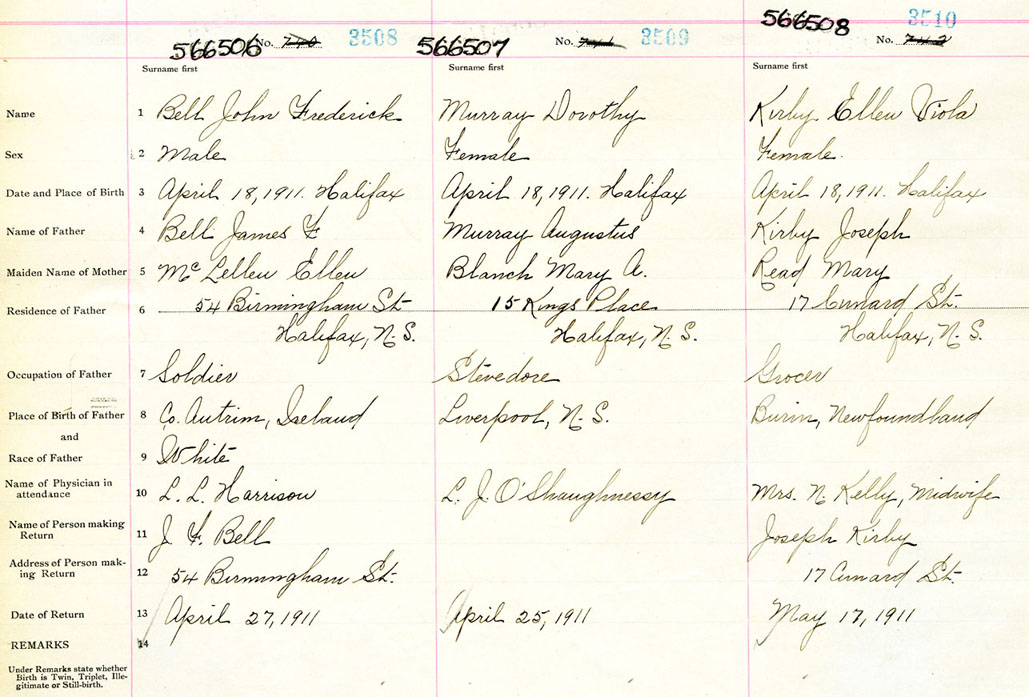 566506 No. 740 3508 566507 No. 741 3509 566508 No. 742 3510
Surname first Surname first Surname first
Name 1 Bell John Frederick Murray Dorothy Kirby Ellen Viola
Sex 2 Male Female Female.
Date and Place of Birth 3 April 18, 1911. Halifax April 18, 1911. Halifax April 18, 1911. Halifax
Name of Father 4 Bell James F Murray Augustus Kirby Joseph
Maiden Name of Mother 5 Mc Lellen Ellen Blanch Mary A. Read Mary
Residence of Father 6 54 Birmingham St. 15 Kings Place 17 Cunard St.
Halifax, N.S. Halifax, N.S. Halifax, N.S.
Occupation of Father 7 Soldier Stevedore Grocer
Place of Birth of Father 8 Co. Antrim, Ireland Liverpool, N.S. Burin, Newfoundland
and
Race of Father 9 White
Name of Physician in
attendance 10 L. L. Harrison L. J. O'Shaughnessy Mrs. N. Kelly, Midwife
Name of Person making
Return 11 J. F. Bell Joseph Kirby
Address of Person mak-
ing Return 12 54 Birmingham St. 17 Cunard St.
Date of Return 13 April 27, 1911 April 25, 1911 May 17, 1911
REMARKS 14
Under Remarks state whether
Birth is Twin, Triplet, Ille-
gitimate or Still-birth.